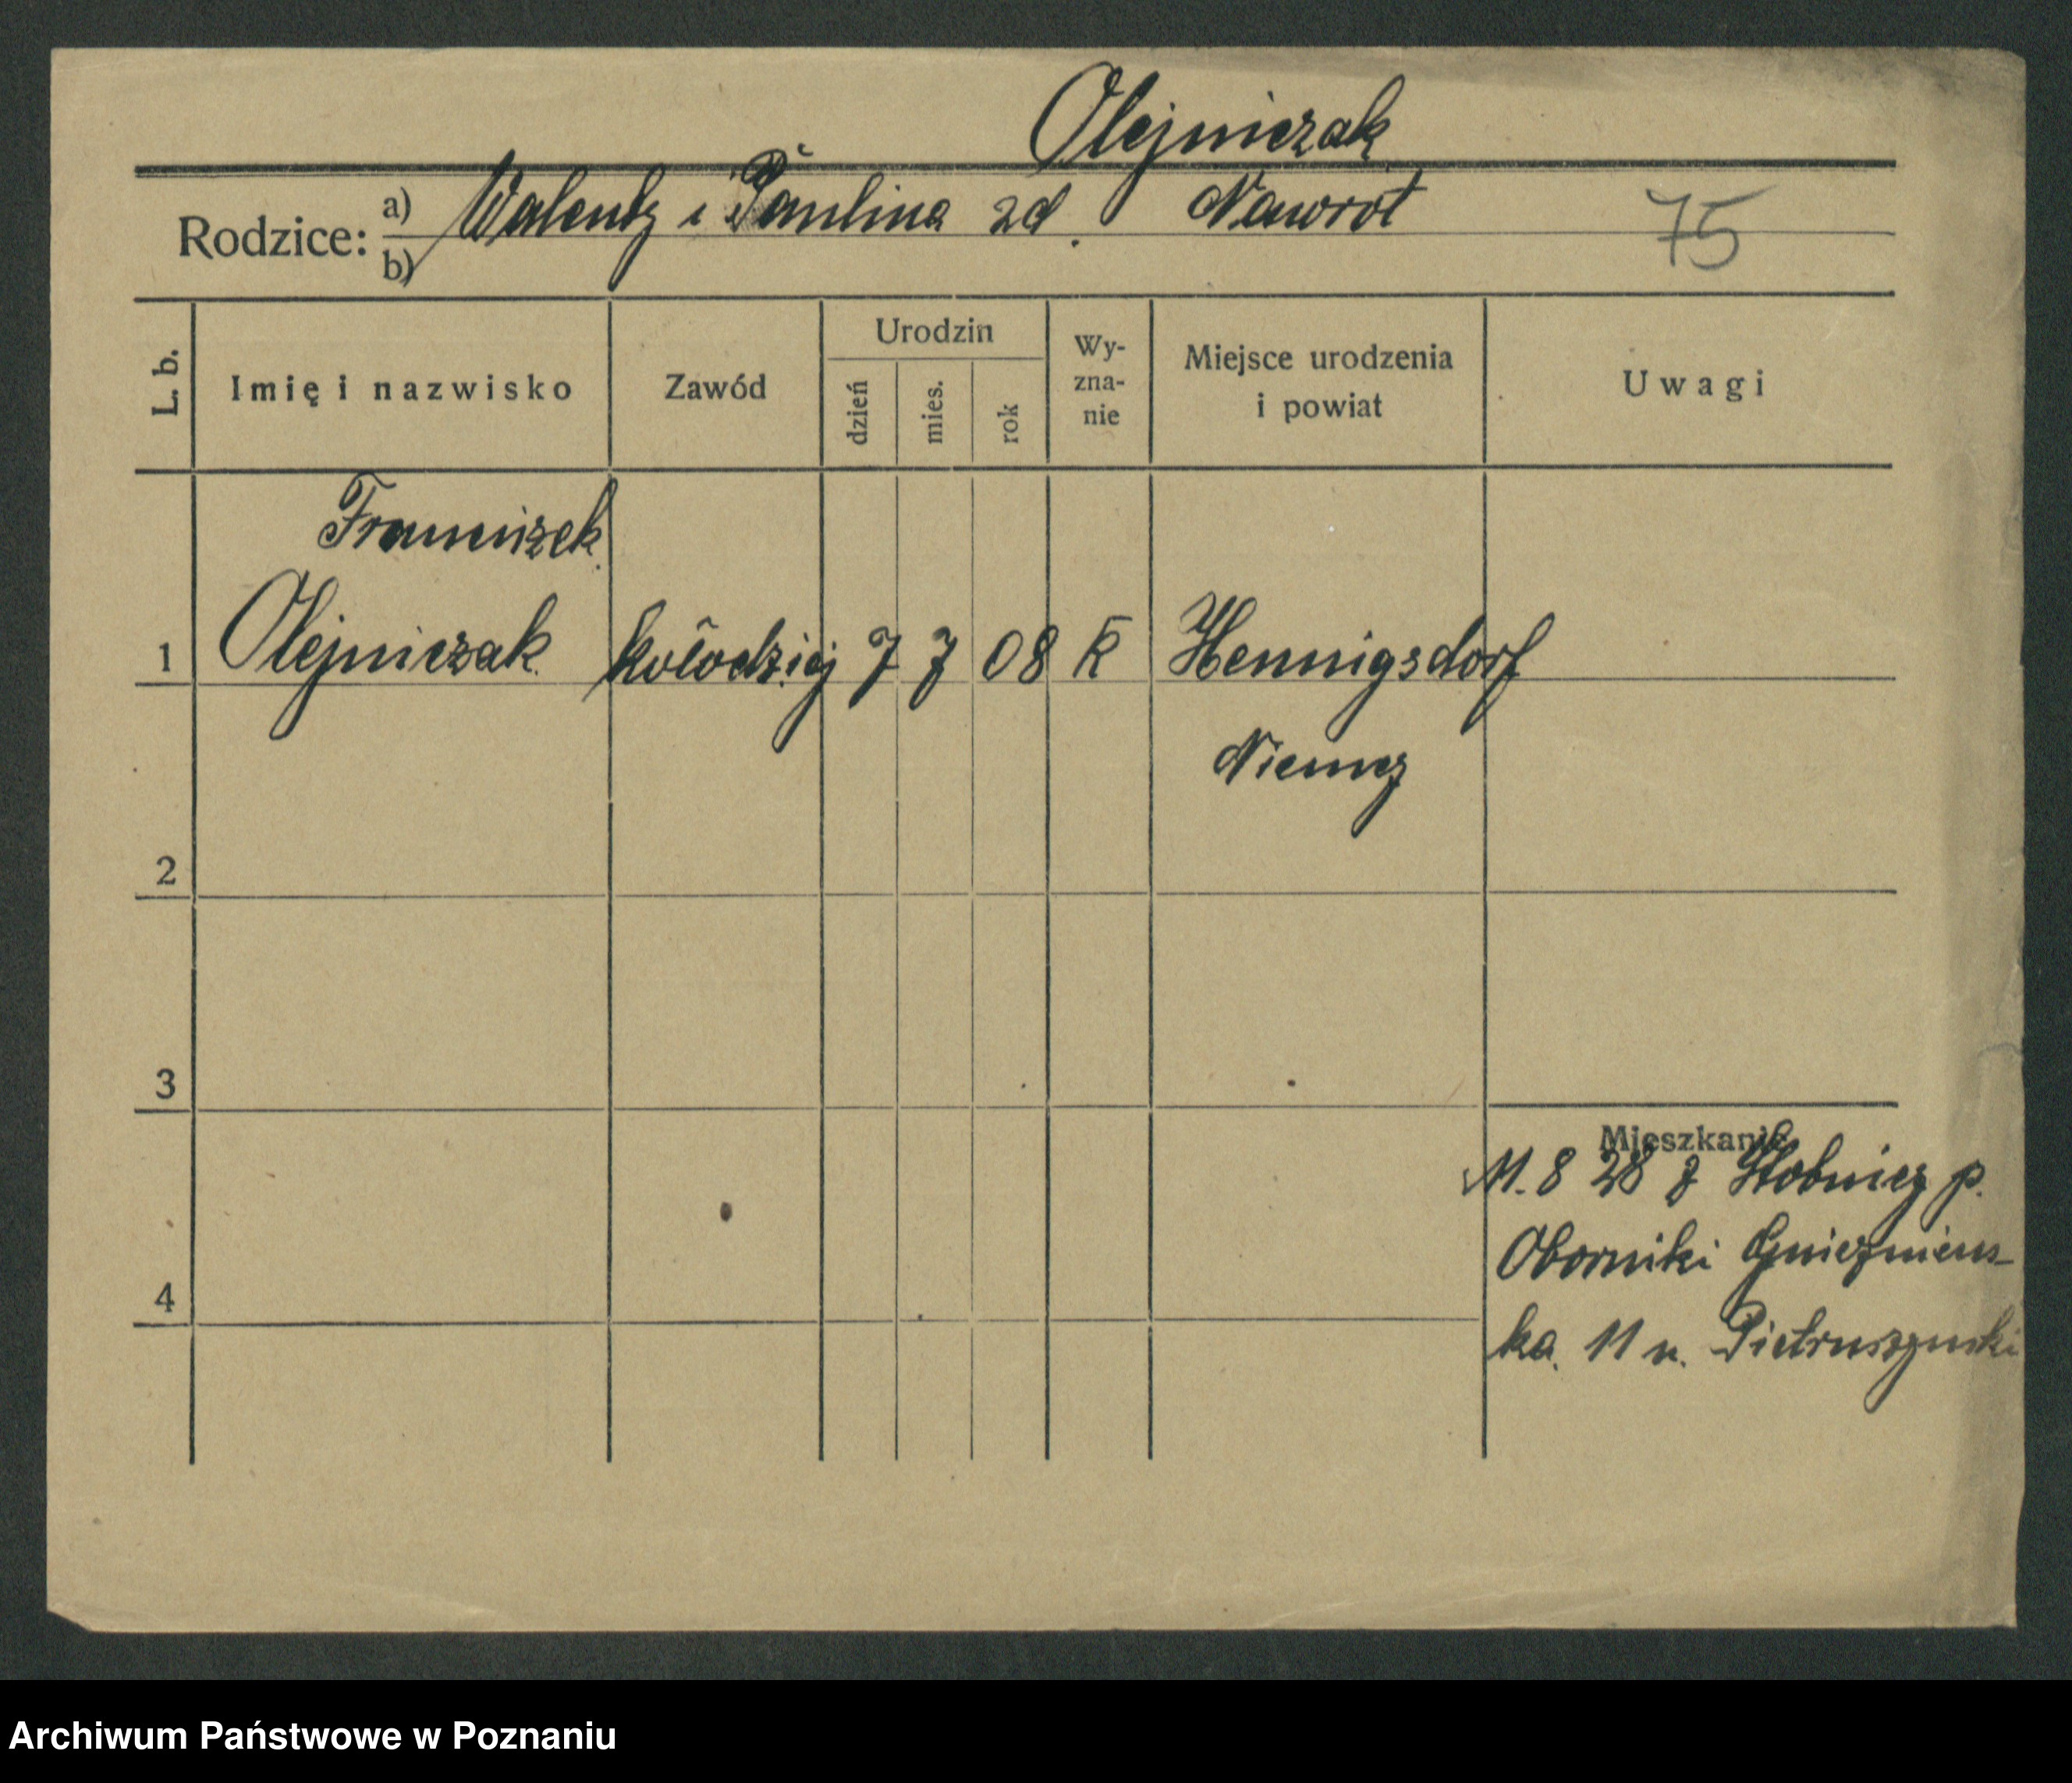 Olejniczak
Rodzice: a) Walenty i Paulina zd. Nawrot
b)
75
L. b.
Imię i nazwisko
Zawód
Urodzin
dzień
mies.
rok
Wy-
zna-
nie
Miejsce urodzenia
i powiat
Uwagi
Franciszek
1 Olejniczak kołodziej 7 7 08 K Hennigsdorf
Niemcy
2
3
Mieszkanie
11. 8 28 z Stobnicy p.
Oborniki Gnieźnieńs-
4
ka. 11 u. Pietruszynski
Archiwum Państwowe w Poznaniu